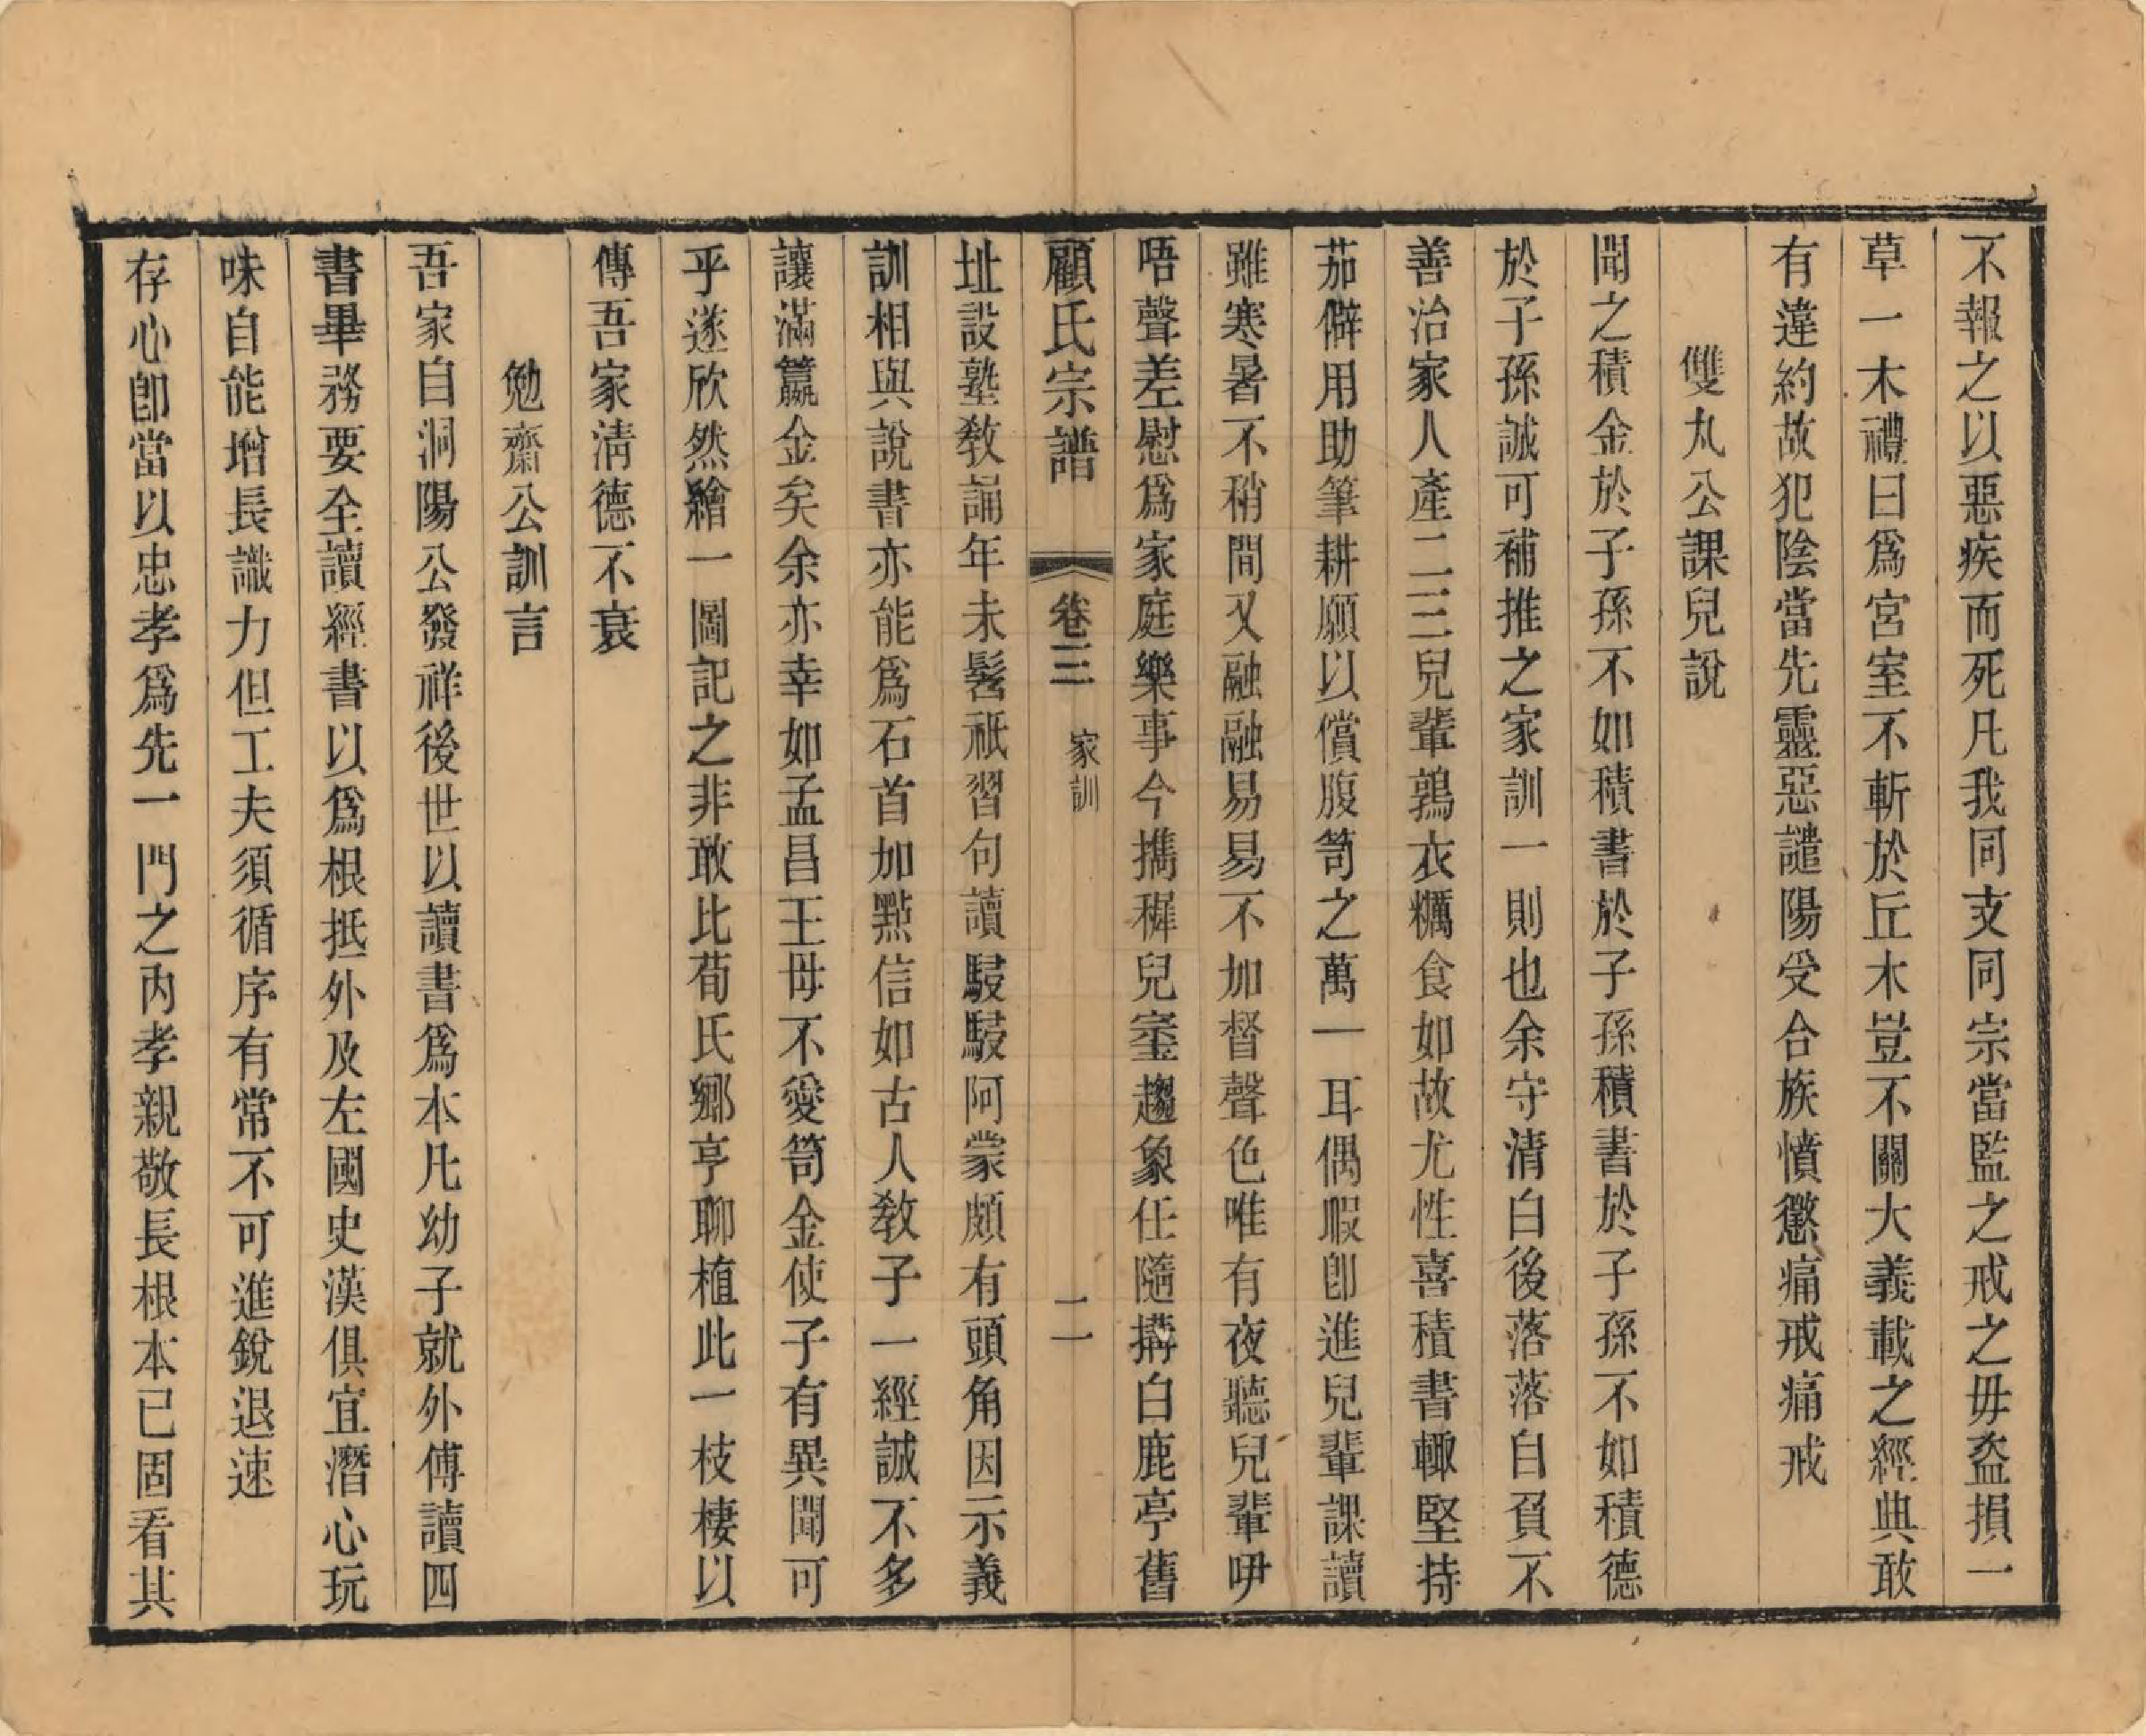 不報之以惡疾而死凡我同支同宗當監之戒之毋盗損一
草一木禮曰爲宮室不斬於丘木豈不關大義載之經典敢
有違約故犯陰當先靈惡譴陽受合族憤懲痛戒痛戒
雙丸公課兒說
聞之積金於子孫不如積書於子孫積書於子孫不如積德
於子孫誠可補推之家訓一則也余守清白後落落自負不
善治家人產二三兒輩鶉衣糲食如故尤性喜積書輙堅持
茹僻用助筆耕願以償腹笥之萬一耳偶暇卽進兒輩課讀
雖寒暑不稍間又融融易易不加督聲色唯有夜聽兒輩吚
唔聲差慰爲家庭樂事今携穉兒銮趨象任隨搆白鹿亭舊
顧氏宗譜 卷三 家訓 二一
址設塾敎誦年未髫祇習句讀駸駸阿蒙頗有頭角因示義
訓相與說書亦能爲石首加㸃信如古人敎子一經誠不多
讓滿籯金矣余亦幸如孟昌王毋不愛笥金使子有異聞可
乎遂欣然繪一圖記之非敢比荀氏鄉亭聊植此一枝棲以
傳吾家淸德不衰
勉齋公訓言
吾家自洞陽公發祥後世以讀書爲本凡幼子就外傅讀四
書畢務要全讀經書以爲根抵外及左國史漢俱宜潛心玩
味自能增長識力但工夫須循序有常不可進銳退速
存心卽當以忠孝爲先一門之內孝親敬長根本已固看其